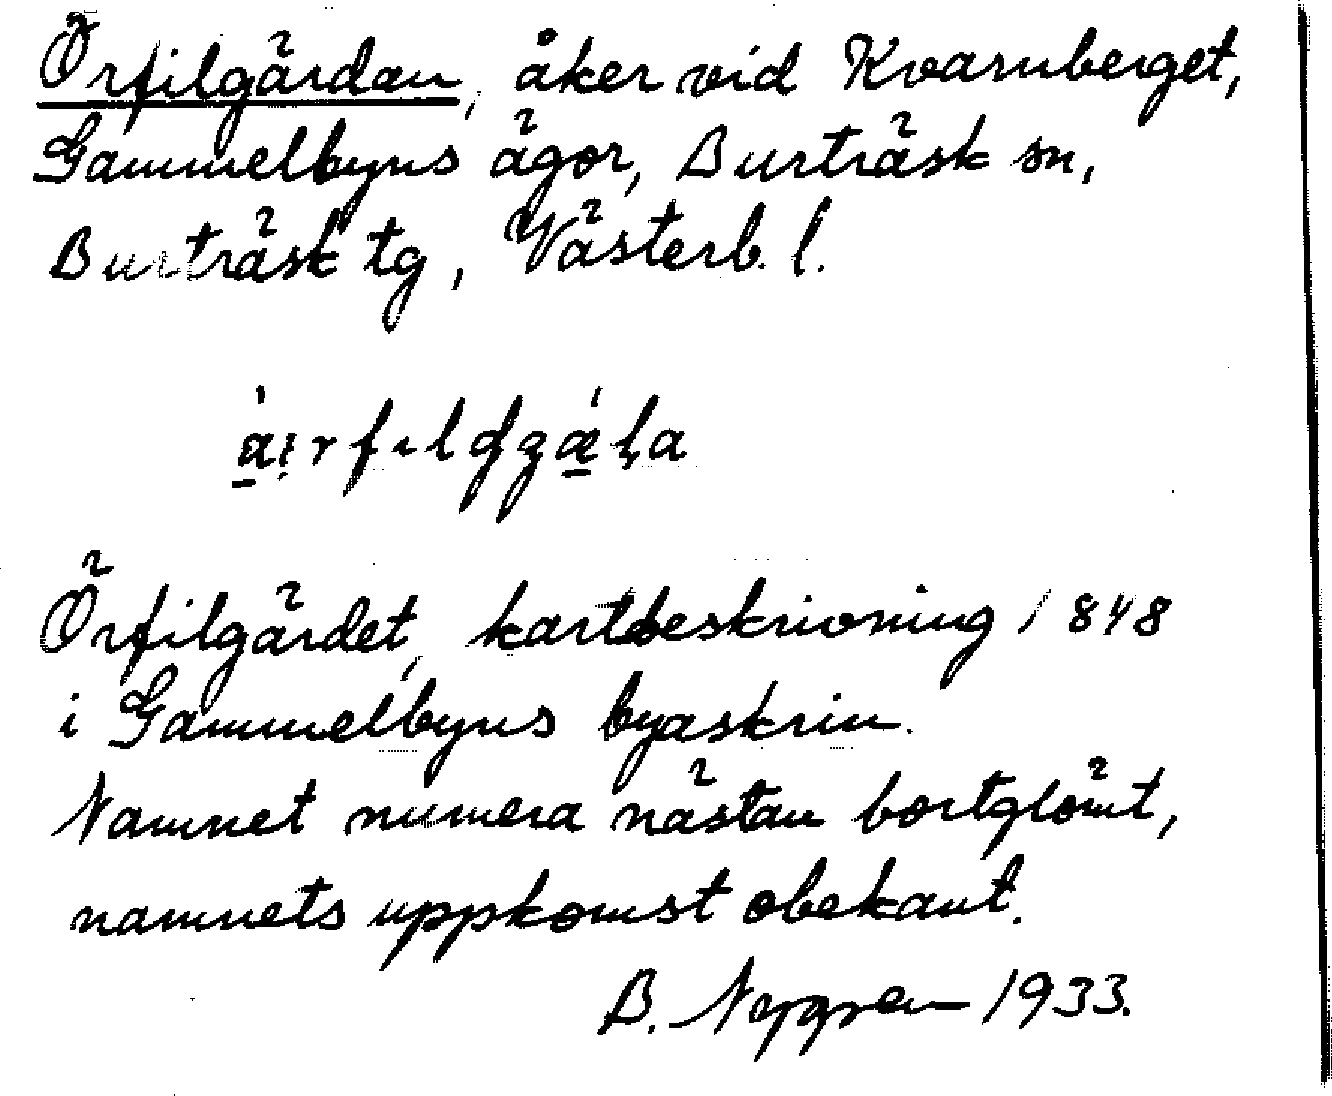 Örfilgärdan, åker vid Kvarnberget,
Gammelbyns ägor, Burträsk sn,
Burträsk tg, Västerb. l.
Örfilgärdet, kartbeskrivning 1848
i Gammelbyns byaskrin.
Namnet numera nästan bortglömt,
namnets uppkomst obekant.
B. Nygren 1933.